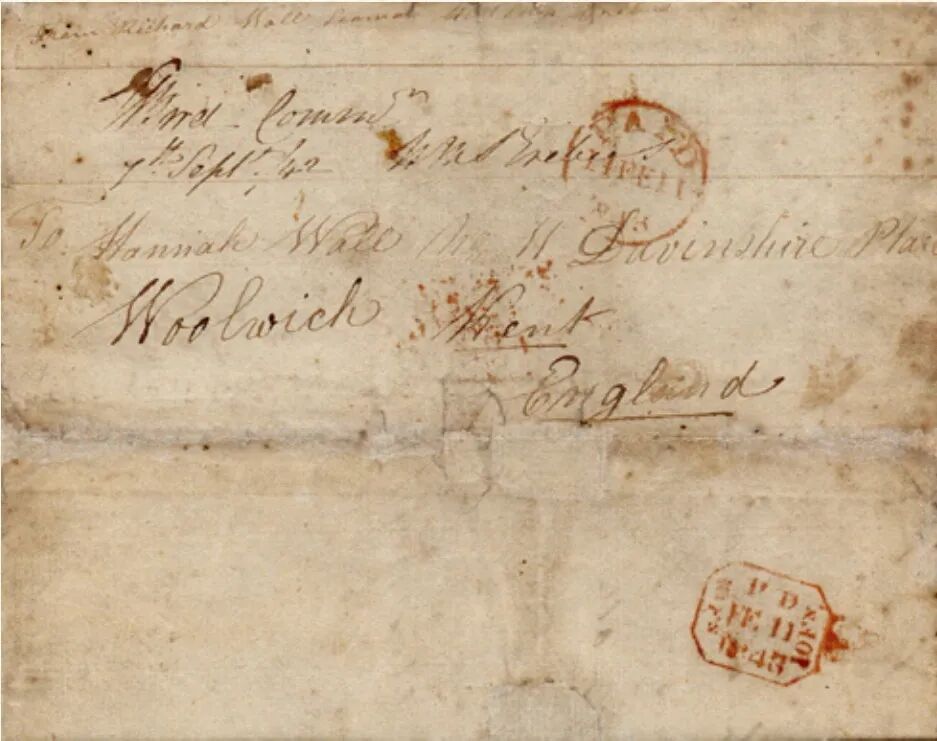 From Richard Wall Seaman
Commdn
7th Sept. /42 HMS Erebus
PAID
11 FE 11
To Hannah Wall No 11 Davinshire Place
Woolwich Kent
England
P D
FE 11
1843